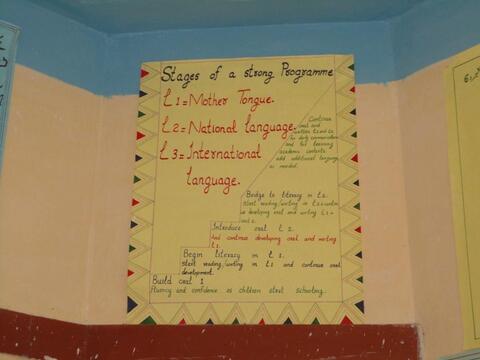 Stages of a strong Programme
L1 = Mother Tongue.
L2 = National language.
L3 = International
language.
Continue
oral and
written L1 and L2
for daily communication
and for learning
academic contents
add additional language
as needed.
Bridge to literacy in L2.
Start reading/writing in L2 & continue
developing oral and writing L1 &
oral 2.
Introduce oral L 2.
And continue developing oral and writing
L1.
Begin literacy in L 1.
Start reading/writing in L1 and continue oral
development.
Build oral 1
fluency and confidence as children start schooling.